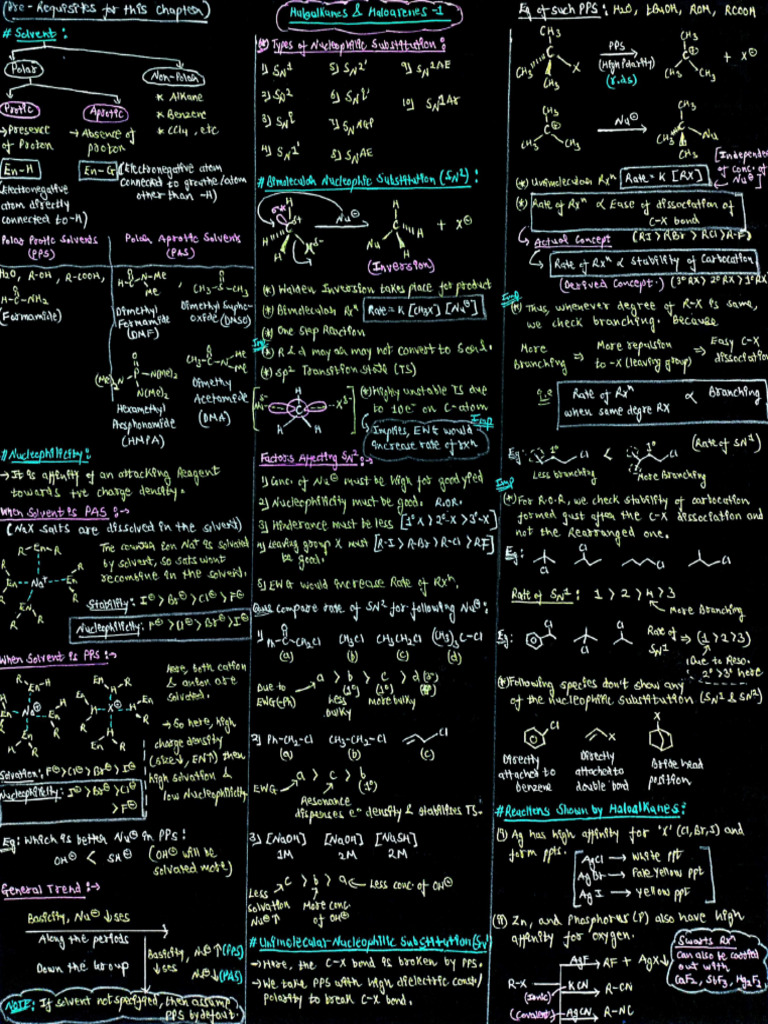 (Pre-Requisites for this Chapter)
# Solvent:
Polar
Non-Polar
* Alkane
* Benzene
* CCl4, etc
Protic
Aprotic
→ Presence of Proton
→ Absence of proton
En-H
(Electronegative atom directly connected to -H)
En-G
(Electronegative atom connected to group/atom other than -H)
Polar Protic Solvents (PPS)
Polar Aprotic Solvents (PAS)
H2O, R-OH, R-COOH,
H-C-NH2
O
(Formamide)
H-C-N-Me
O
Me
Dimethyl Formamide (DMF)
CH3-S-CH3
O
(DMSO)
(Me)2N-P-N(Me)2
O
N(Me)2
Hexamethyl Phosphoramide (HMPA)
CH3-C-N
O
Me
Me
Dimethyl Acetamide (DMA)
# Nucleophilicity:
→ It is affinity of an attacking Reagent
towards +ve charge density.
When Solvent is PAS:→
(NaX salts are dissolved in the solvent)
R-En-R
Na+
The counter ion Na⊕ is solvated
by solvent, so salts wont
recombine in the solvent.
Stability: I⊖ > Br⊖ > Cl⊖ > F⊖
Nucleophilicity: F⊖ > Cl⊖ > Br⊖ > I⊖
When Solvent is PPS:→
Here, both cation
& anion are
solvated.
Na⊕
X⊖
→ So here, high
charge density
(size↓, EN↑) then
high solvation &
low Nucleophilicity
Solvation: F⊖ > Cl⊖ > Br⊖ > I⊖
Nucleophilicity: I⊖ > Br⊖ > Cl⊖
> F⊖
Eg: Which is better Nu⊖ in PPS:
OH⊖ < SH⊖
(OH⊖ will be solvated more)
General Trend:→
Basicity, Nu⊖ ↓ses
Along the periods
Down the Group
Basicity, ↓ses
Nu⊖↑(PPS)
Nu⊖↓(PAS)
NOTE: If solvent not specified, then assume
PPS by default.
Haloalkanes & Haloarenes-1
(*) Types of Nucleophilic Substitution:
1) SN1
5) SN2'
9) SN1AE
2) SN2
6) SNi'
10) SN1Ar
3) SNi
7) SNNGP
4) SN1'
8) SNAE
# Bimolecular Nucleophic Substitution (SN2):
Nu⊖
+ X⊖
(Inversion)
(*) Walden Inversion takes place for product
(*) Bimolecular Rxn
Rate = K [CH3X] [Nu⊖]
(*) One Step Reaction
Imp
(*) R & d may or may not convert to S and l.
(*) sp2 Transition State (TS)
(*) Highly unstable TS due
to 10e⁻ on C-atom
Imp
Implies, EWG would
increase rate of rxn
Factors Affecting SN2:→
1) Conc. of Nu⊖ must be high for good yield
2) Nucleophilicity must be good. R.O.R.
3) Hinderance must be less [1°-X > 2°-X > 3°-X]
4) Leaving group X must be good. [R-I > R-Br > R-Cl > R-F]
5) EWG would increase Rate of Rxn.
Ques: Compare rate of SN2 for following Nu⊖:
1) Ph-C-CH2Cl
O
CH3Cl
CH3CH2Cl
(CH3)3C-Cl
(a) (b) (c) (d)
a > b > c > d (3°)
Due to EWG (-Ph)
(1°)
Less bulky
more bulky
2) Ph-CH2-Cl
CH3-CH2-Cl
Cl
(a) (b) (c)
EWG
a > c > b
(1°)
Resonance
dispenses e⁻ density & stabilizes TS.
3) [NaOH] [NaOH] [NaSH]
1M 2M 2M
c > b > a ← Less conc. of OH⊖
Less solvation Nu⊖↑
More conc of OH⊖
# Unimolecular Nucleophilic Substitution (SN1)
→ Here, the C-X bond is broken by PPS.
→ We take PPS with high dielectric const/
Polarity to break C-X bond.
Eg of such PPS: H2O, EtOH, ROH, RCOOH
CH3
X
PPS
(High Polarity)
(r.d.s)
+ X⊖
Nu⊖
Nu
[Independent of conc. of Nu⊖]
(*) Unimolecular Rxn
Rate = K [RX]
(*) Rate of Rxn ∝ Ease of dissociation of
C-X bond
Actual Concept (RI > RBr > RCl > R-F)
Rate of Rxn ∝ Stability of Carbocation
(Derived Concept) (3° RX > 2° RX > 1° RX)
Imp
(*) Thus, whenever degree of R-X is same,
we check branching. Because
More branching ⇒ More repulsion to -X (leaving group) ⇒ Easy C-X dissociation
i.e
Rate of Rxn ∝ Branching
when same degre RX
Eg:
1°
Cl
<
1°
Cl
(Rate of SN1)
Less branching
More Branching
Imp
(*) For R.O.R, we check stability of carbocation
formed just after the C-X dissociation and
not the Rearranged one.
Eg:
Cl
Cl
Cl
Cl
Rate of SN1: 1 > 2 > 4 > 3
More Branching
Eg:
Cl
Cl
Cl
Rate of SN1 ⇒ (1 > 2 > 3)
Due to Reso.
2° > 3° here
(*) Following species don't show any
of the nucleophilic substitution (SN1 & SN2)
Cl
X
X
Directly attached to benzene
Directly attached to double bond
Bridge head position
# Reactions Shown by Haloalkanes:
(i) Ag has high affinity for 'X' (Cl, Br, I) and
form ppts.
AgCl → White ppt
AgBr → Pale Yellow ppt
AgI → Yellow ppt
(ii) Zn, and Phosphorus (P) also have high
affinity for oxygen.
Swarts Rxn
Can also be carried
out with
CoF2, SbF3, Hg2F2
R-X
AgF → RF + AgX↓
KCN → R-CN
(Ionic)
AgCN → R-NC
(Covalent)